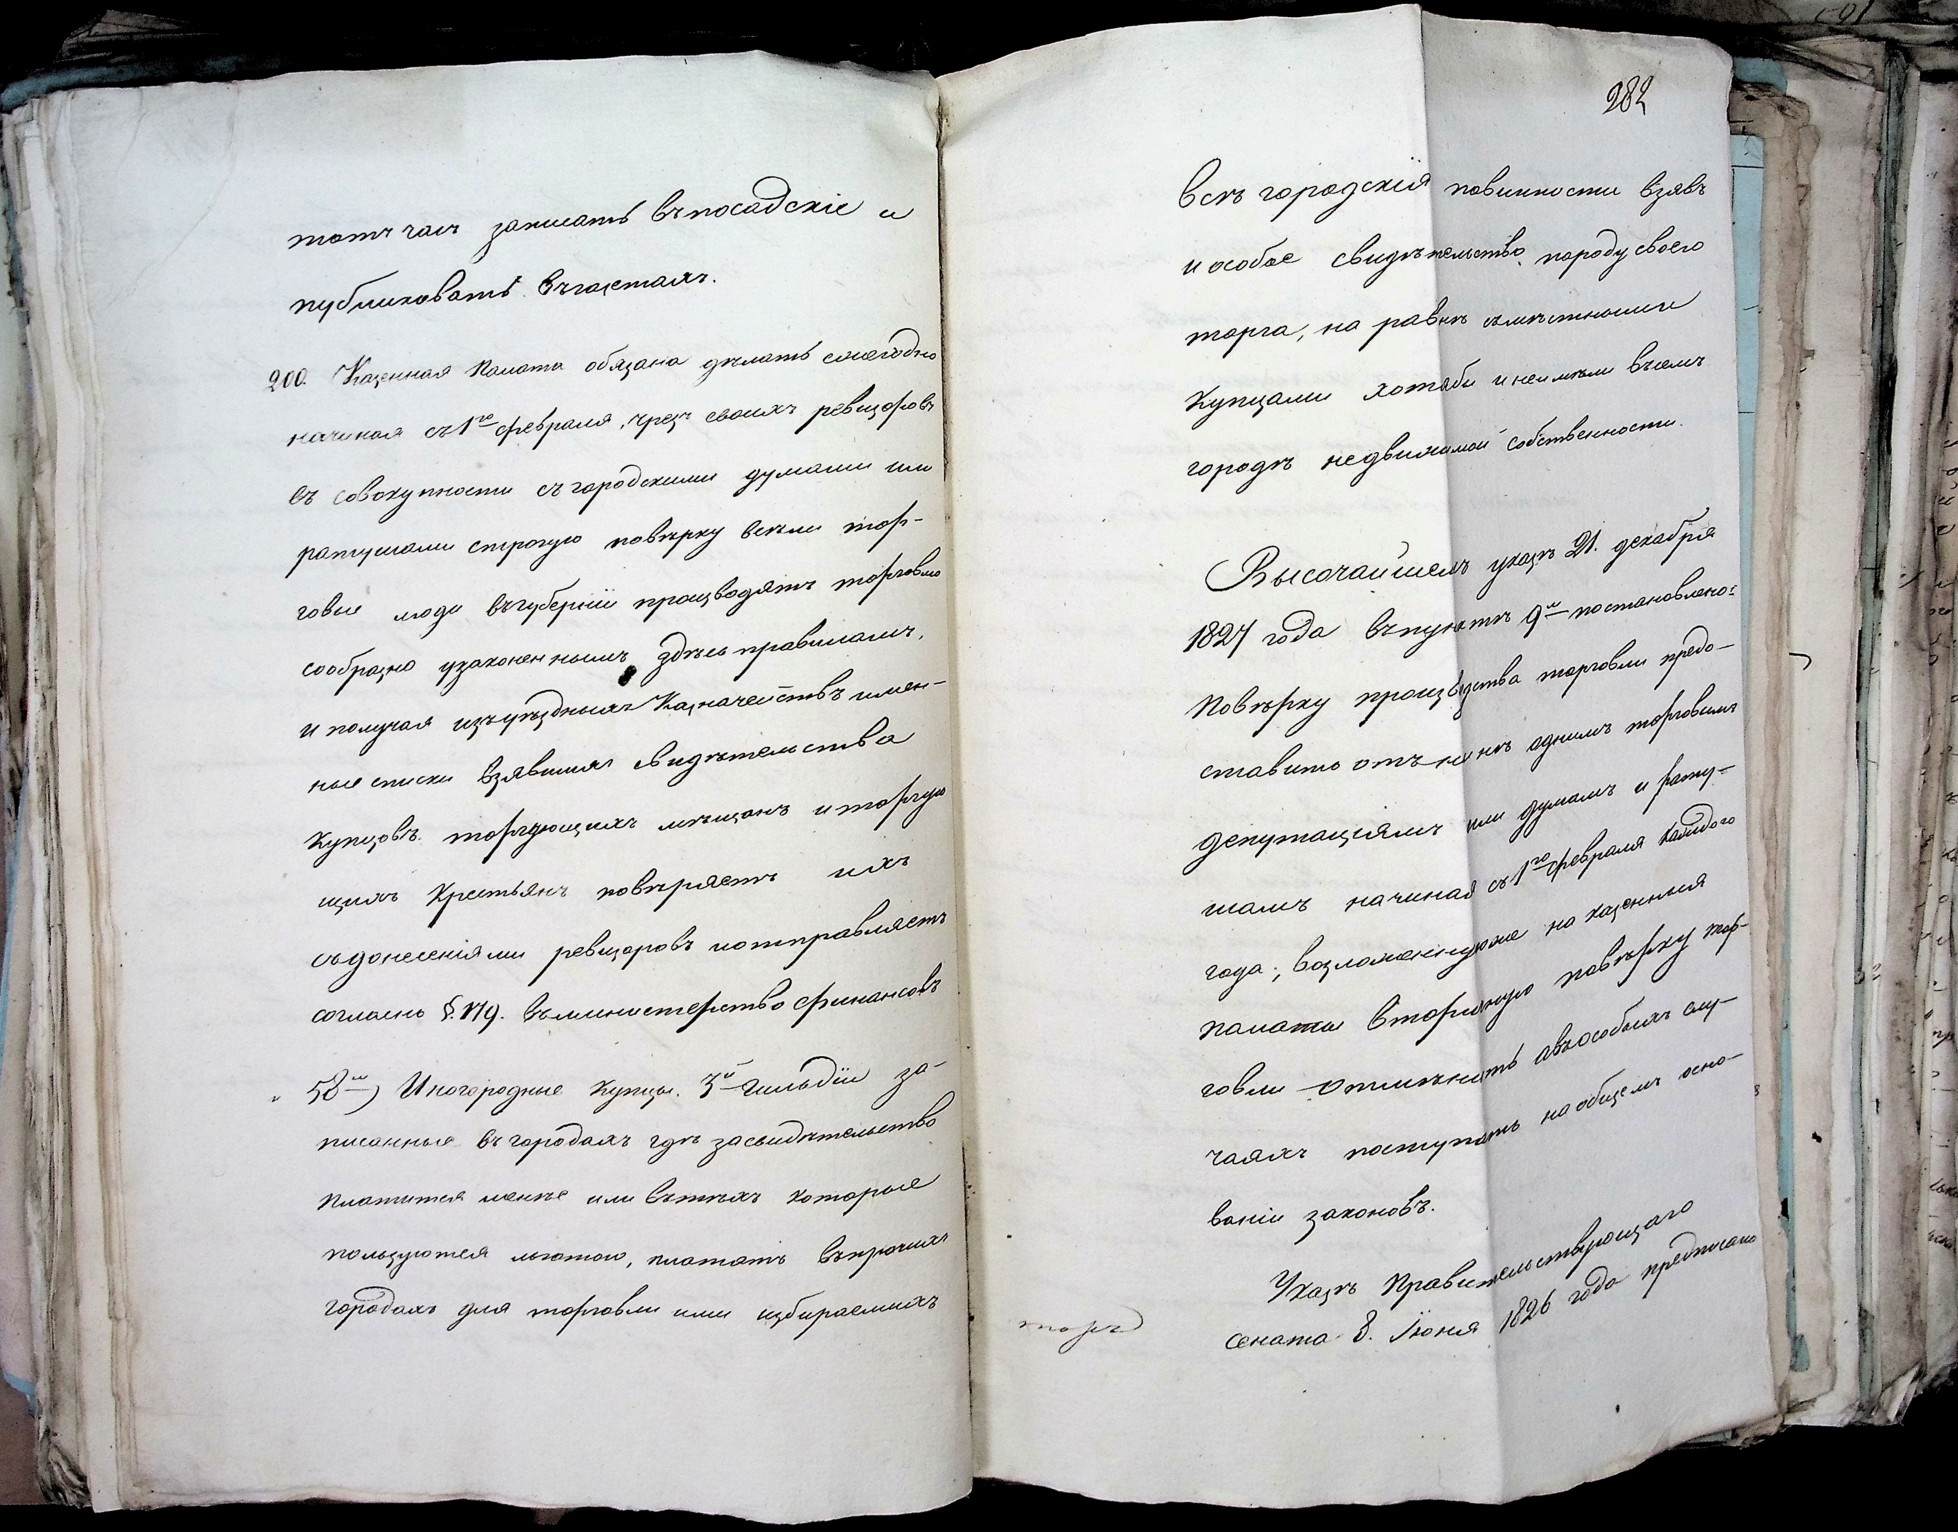 тотъ часъ записать въ посадскіе и
публиковать въ газетахъ.
200. Казенная Палата обязана дѣлать ежегодно
начиная съ 1го февраля, чрезъ своихъ ревизоровъ
въ совокупности съ городскими думами или
ратушами строгую повѣрку всѣ ли тор-
говые люди въ губерніи производятъ торговлю
сообразно узаконеннымъ здѣсь правиламъ,
и получая изъ уѣздныхъ Казначействъ имен-
ные списки взявшихъ свидѣтельства
Купцовъ торгующихъ мѣщанъ и торгую
щихъ Крестьянъ повѣряетъ ихъ
съ донесеніями ревизоровъ и отправляетъ
согласно §. 179. въ министерство финансовъ
58и) Иногородные Купцы 3й гильдіи за-
писанные въ городахъ гдѣ за свидѣтельство
платится менѣе или въ тѣхъ которые
пользуются льготою, платятъ въ прочихъ
городахъ для торговли ими избираемыхъ
282
всѣ городскія повинности взявъ
и особое свидѣтельство породу своего
торга, на равнѣ съ мѣстными
Купцами хотябы и неимѣли въ семъ
городѣ недвижимой собственности.
Высочайшемъ указѣ 21. декабря
1827 года въ пунктѣ 9м постановлено:
Повѣрку производства торговли предо-
ставить отъ нынѣ однимъ торговымъ
депутаціямъ или думамъ и рату-
шамъ начиная съ 1го февраля каждого
года; возложенную же на казенныя
палаты вторичную повѣрку тор-
говли отмѣнить а въ особыхъ слу-
чаяхъ поступать на общемъ осно-
ваніи законовъ.
Указъ Правительствующаго
сената 8. Іюня 1826 года предписано
торг